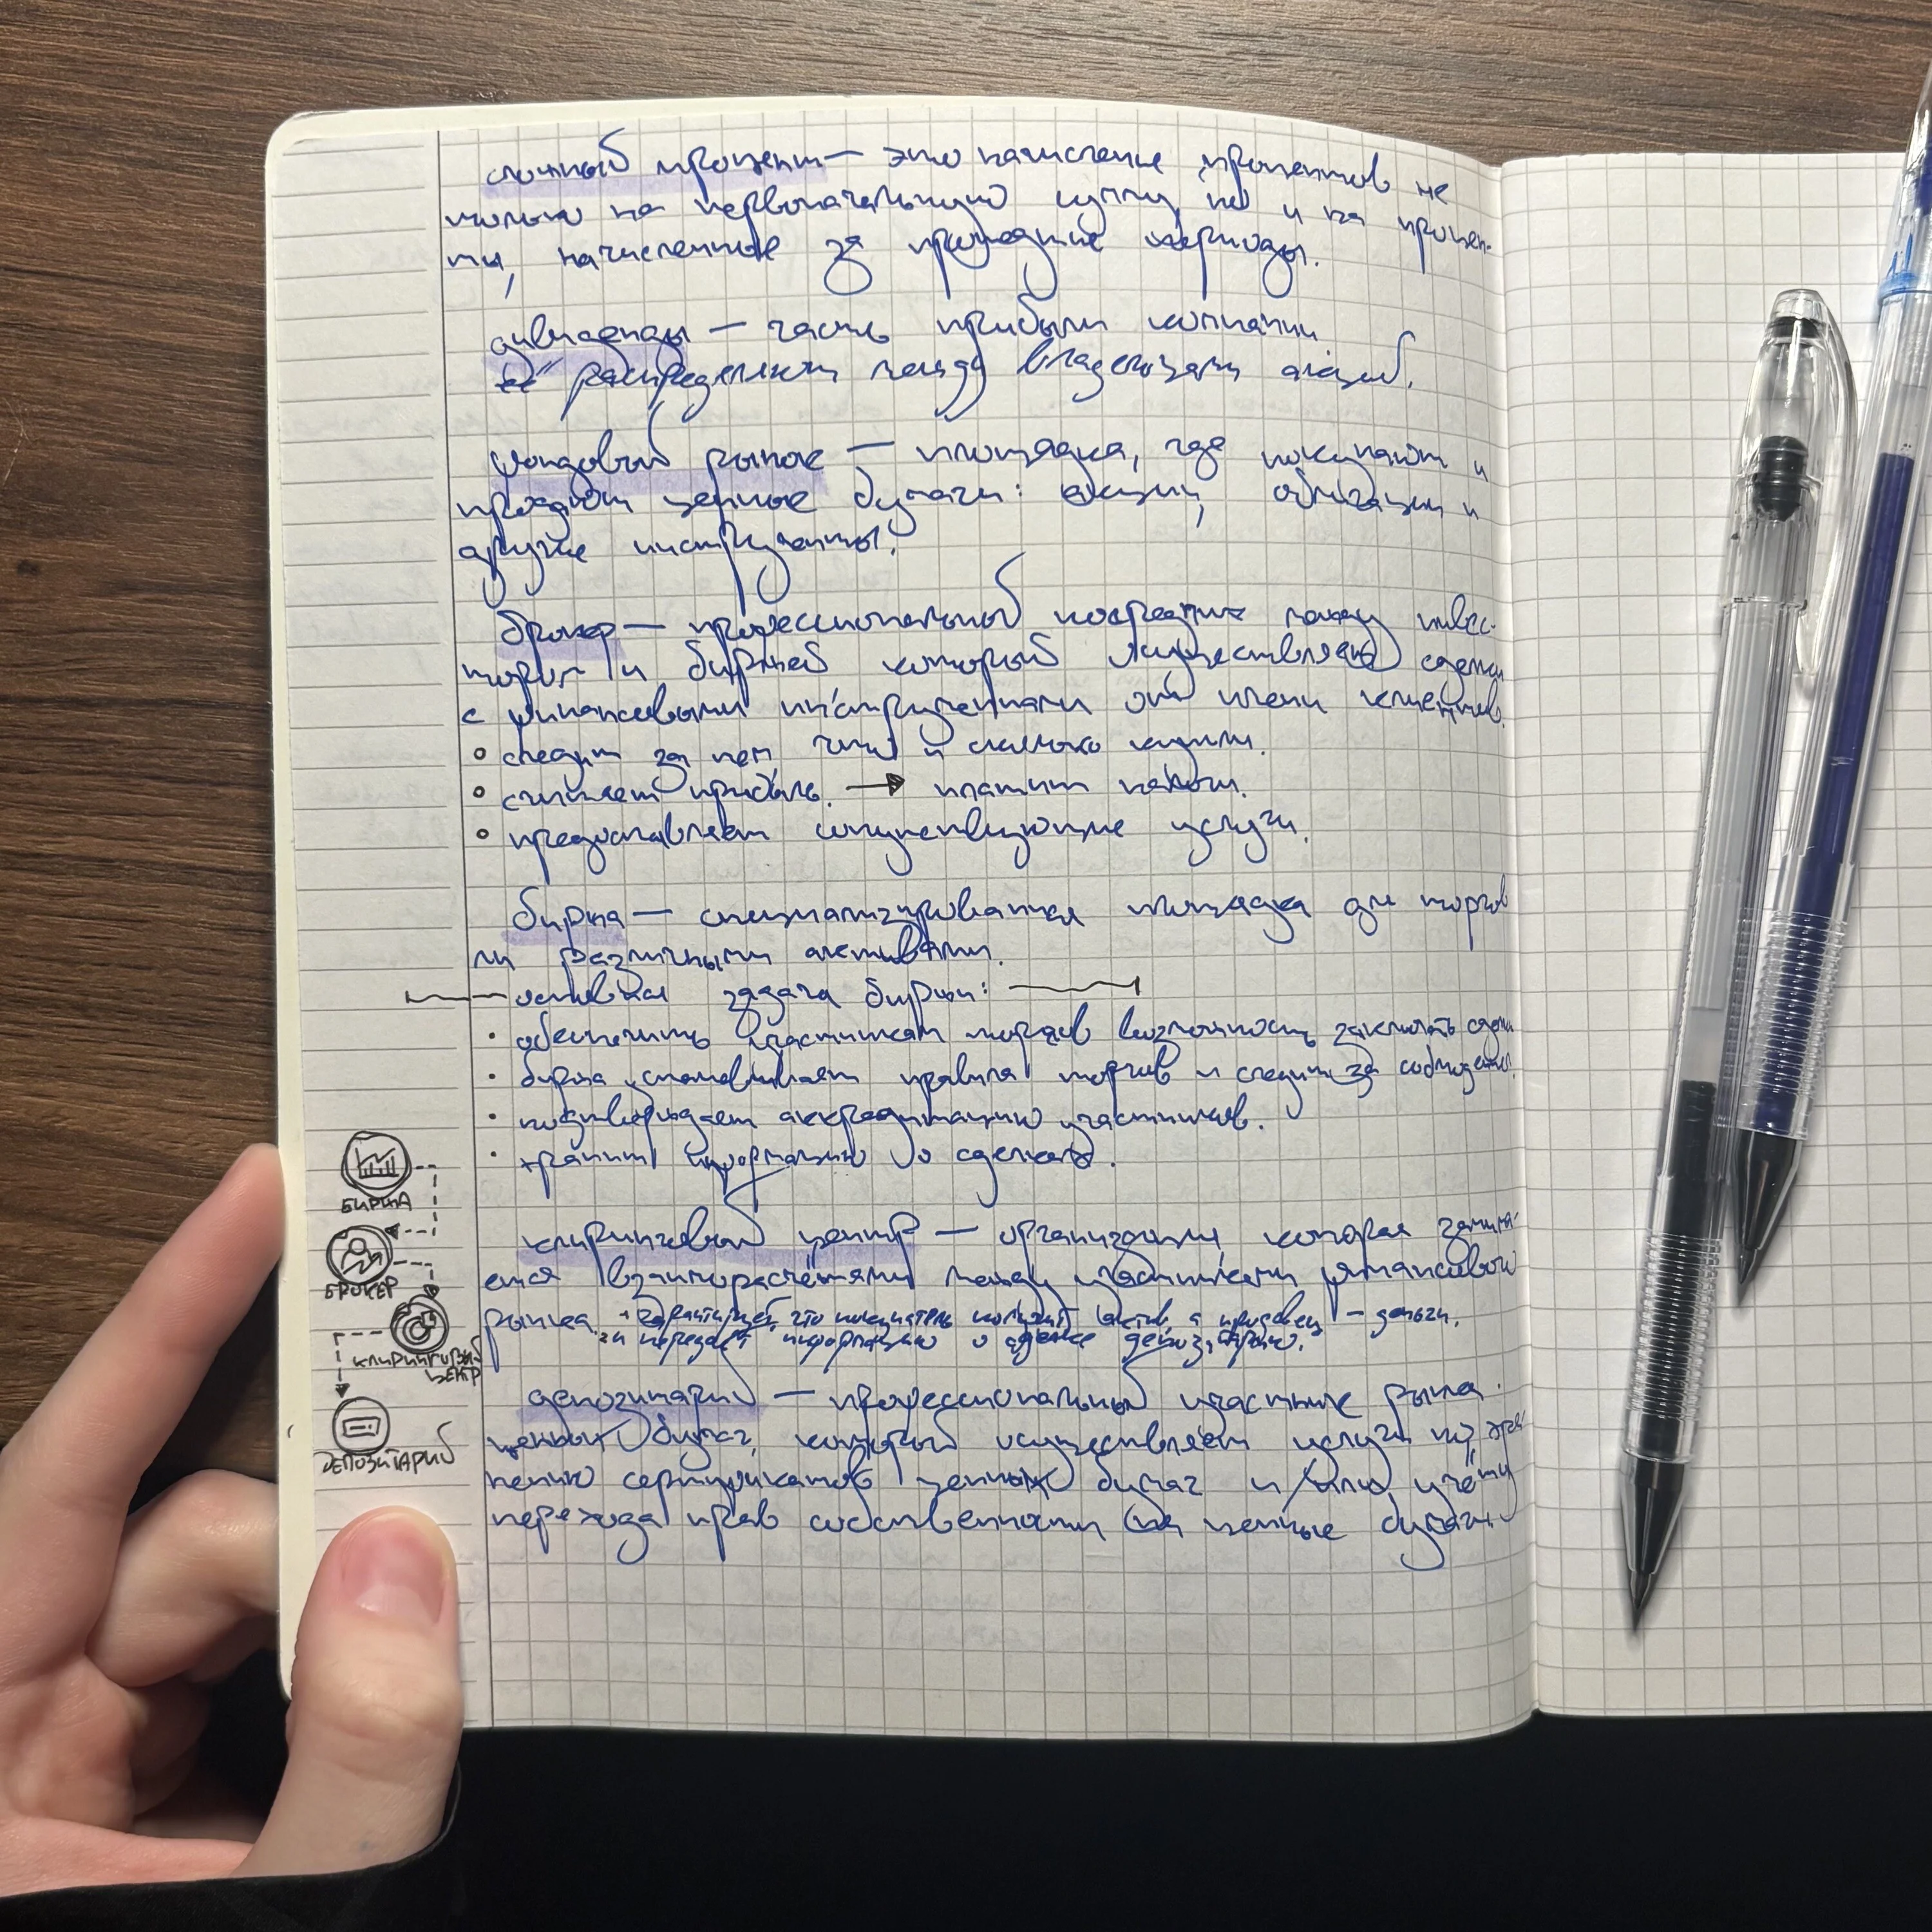 сложный процент — это начисление процентов не
только на первоначальную сумму, но и на процен-
ты, начисленные за прошедшие периоды.
дивиденды — часть прибыли компании
распределяют между владельцами акций.
фондовый рынок — площадка, где покупают и
продают ценные бумаги: акции, облигации и
другие инструменты.
брокер — профессиональный посредник между инвес-
тором и биржей который осуществляет сделки
с финансовыми инструментами от имени клиентов.
следит за тем, что и сколько купили.
считает прибыль. → платит налоги.
предоставляет сопутствующие услуги.
биржа — специализированная площадка для торгов
ли различными активами.
основная задача биржи:
· обеспечить участникам торгов возможность заключать сделки
· биржа устанавливает правила торгов и следит за соблюдением.
· подтверждает аккредитацию участников.
· хранит информацию о сделках.
клиринговый центр — организация, которая занима-
ется взаиморасчётами между участниками финансового
рынка. + гарантирует, что покупатель получит актив, а продавец — деньги.
и передаёт информацию о сделке депозитарию.
депозитарий — профессиональный участник рынка
ценных бумаг, который осуществляет услуги по хра-
нению сертификатов ценных бумаг и/или учёту
перехода прав собственности на ценные бумаги.
БИРЖА
БРОКЕР
КЛИРИНГОВЫЙ
ЦЕНТР
ДЕПОЗИТАРИЙ